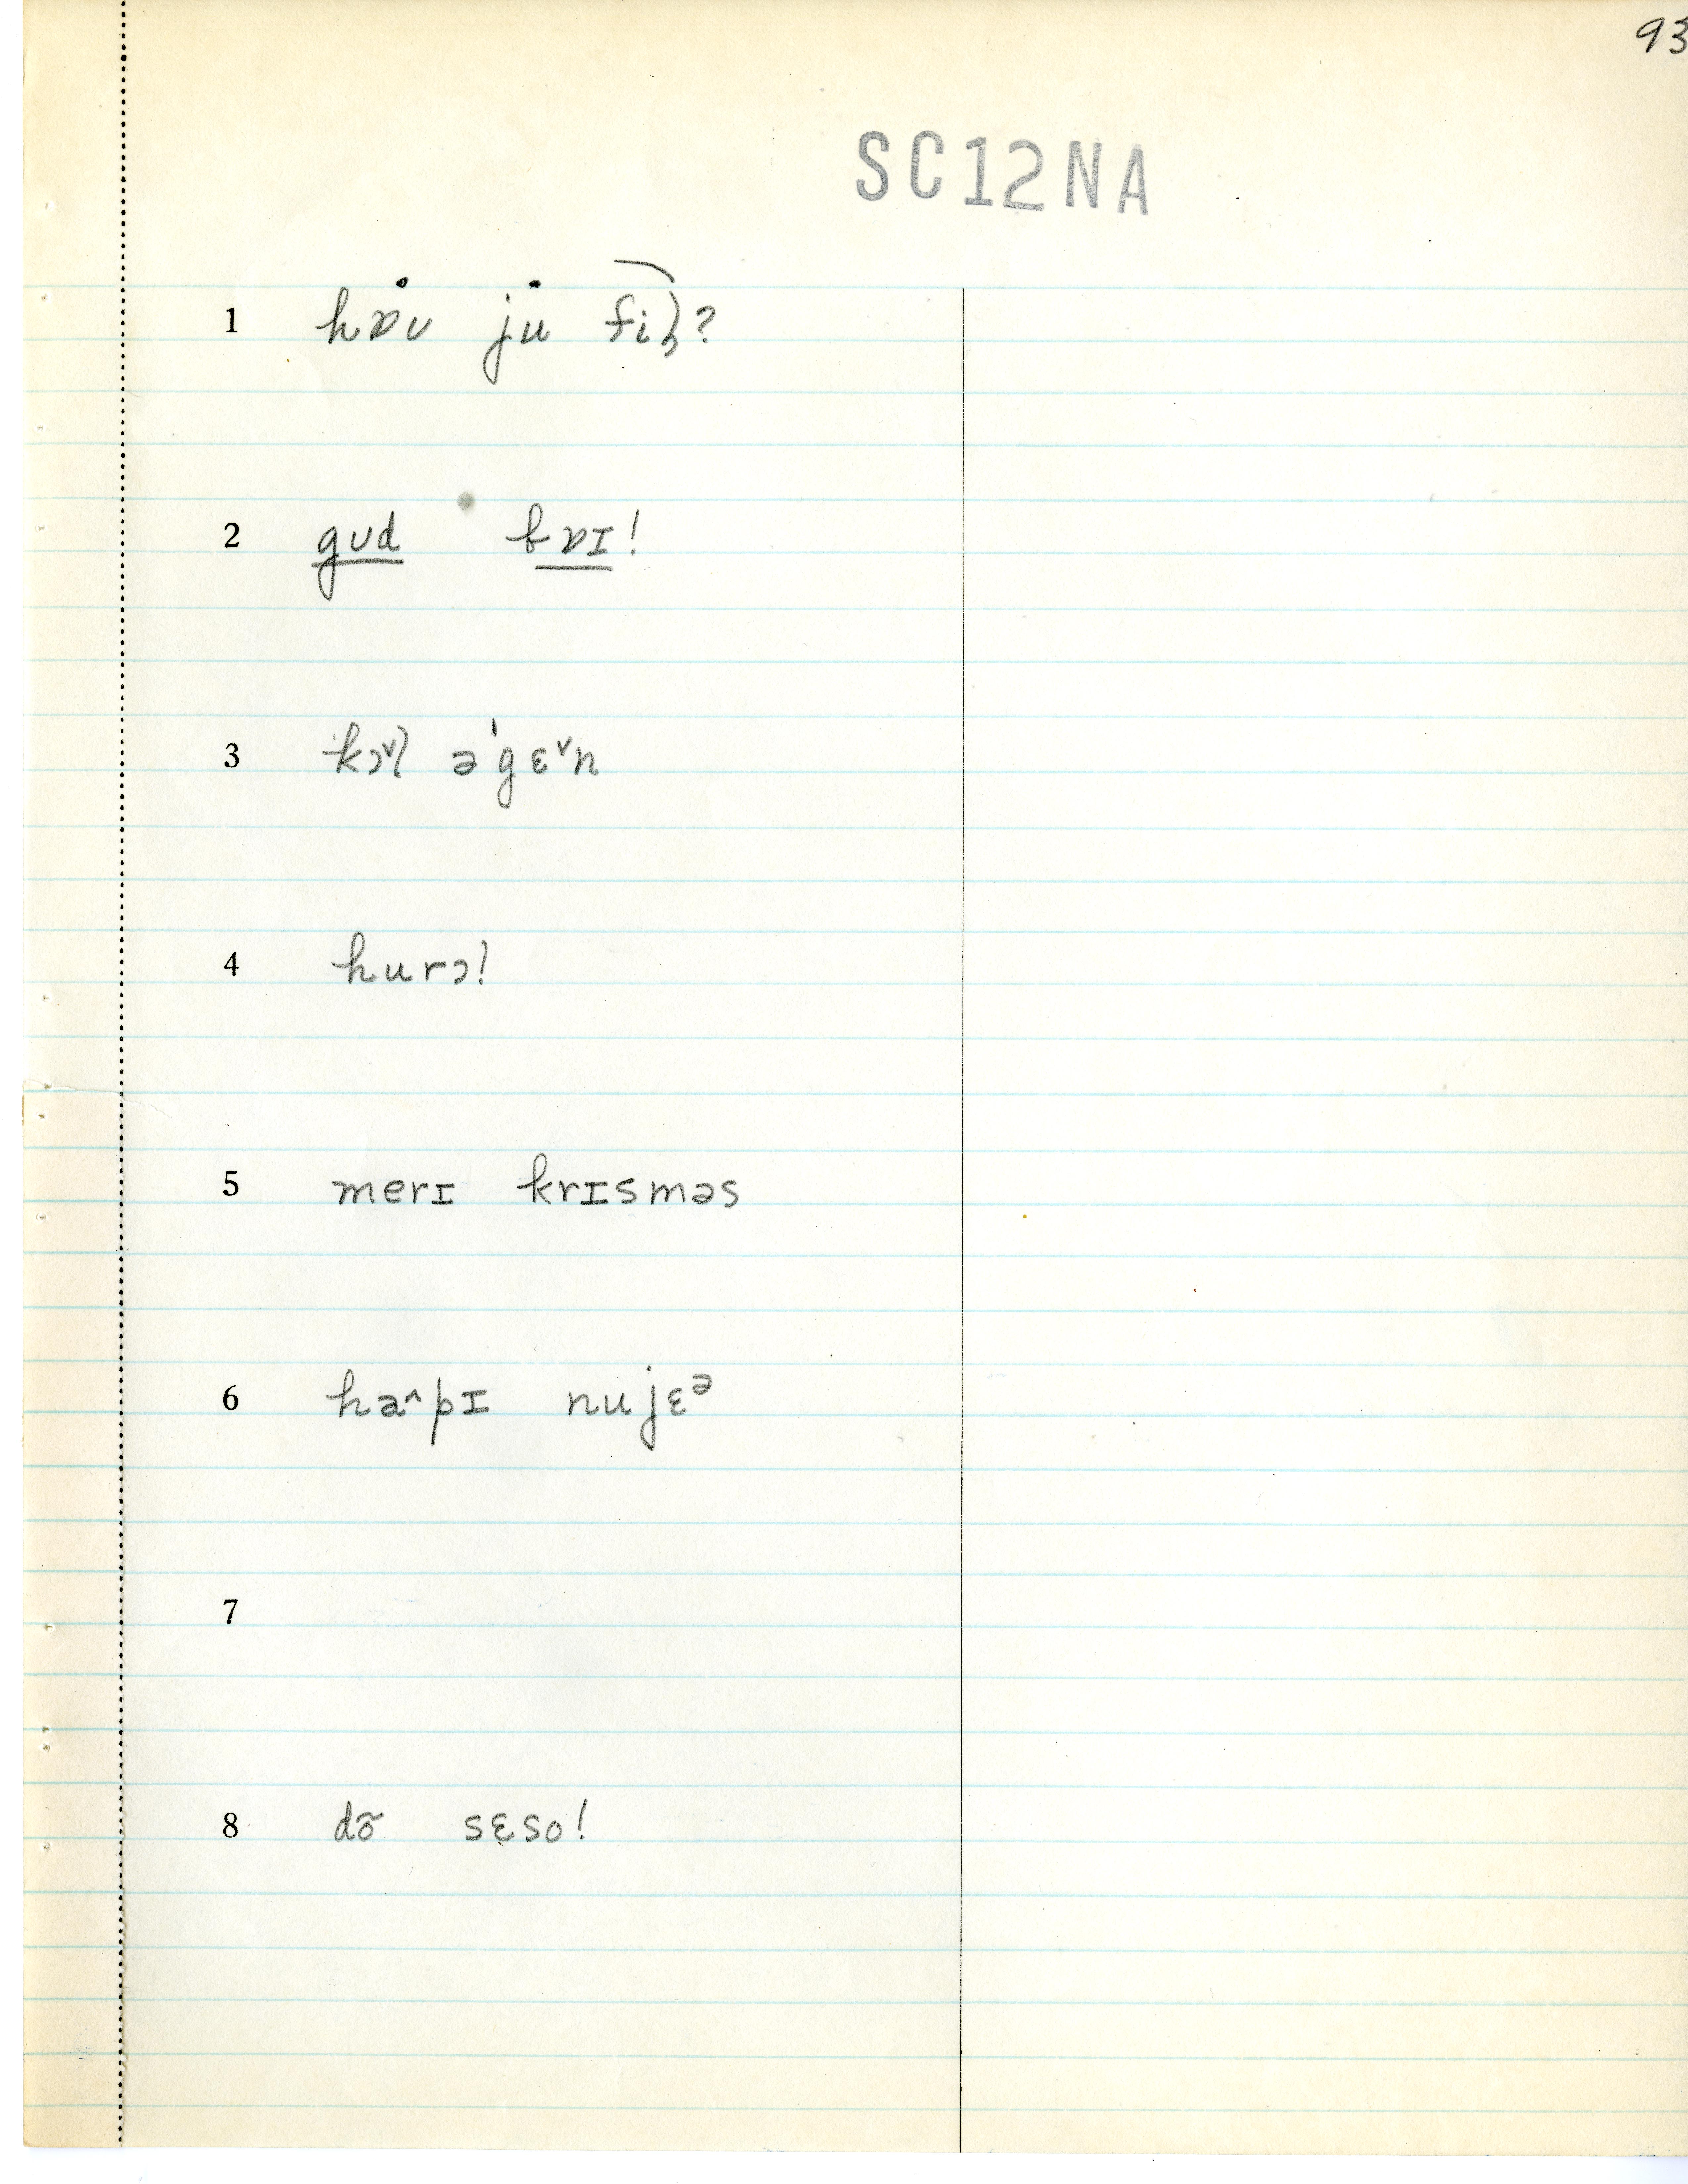 93
SC12NA
1 hɒu ju fiɫ?
2 gʊd bɒɪ!
3 kɔ˅l ə'gɛ˅n
4 hurɔ!
5 merɪ krɪsməs
6 ha^pɪ nujɛᵊ
7
8 dõ sɛso!